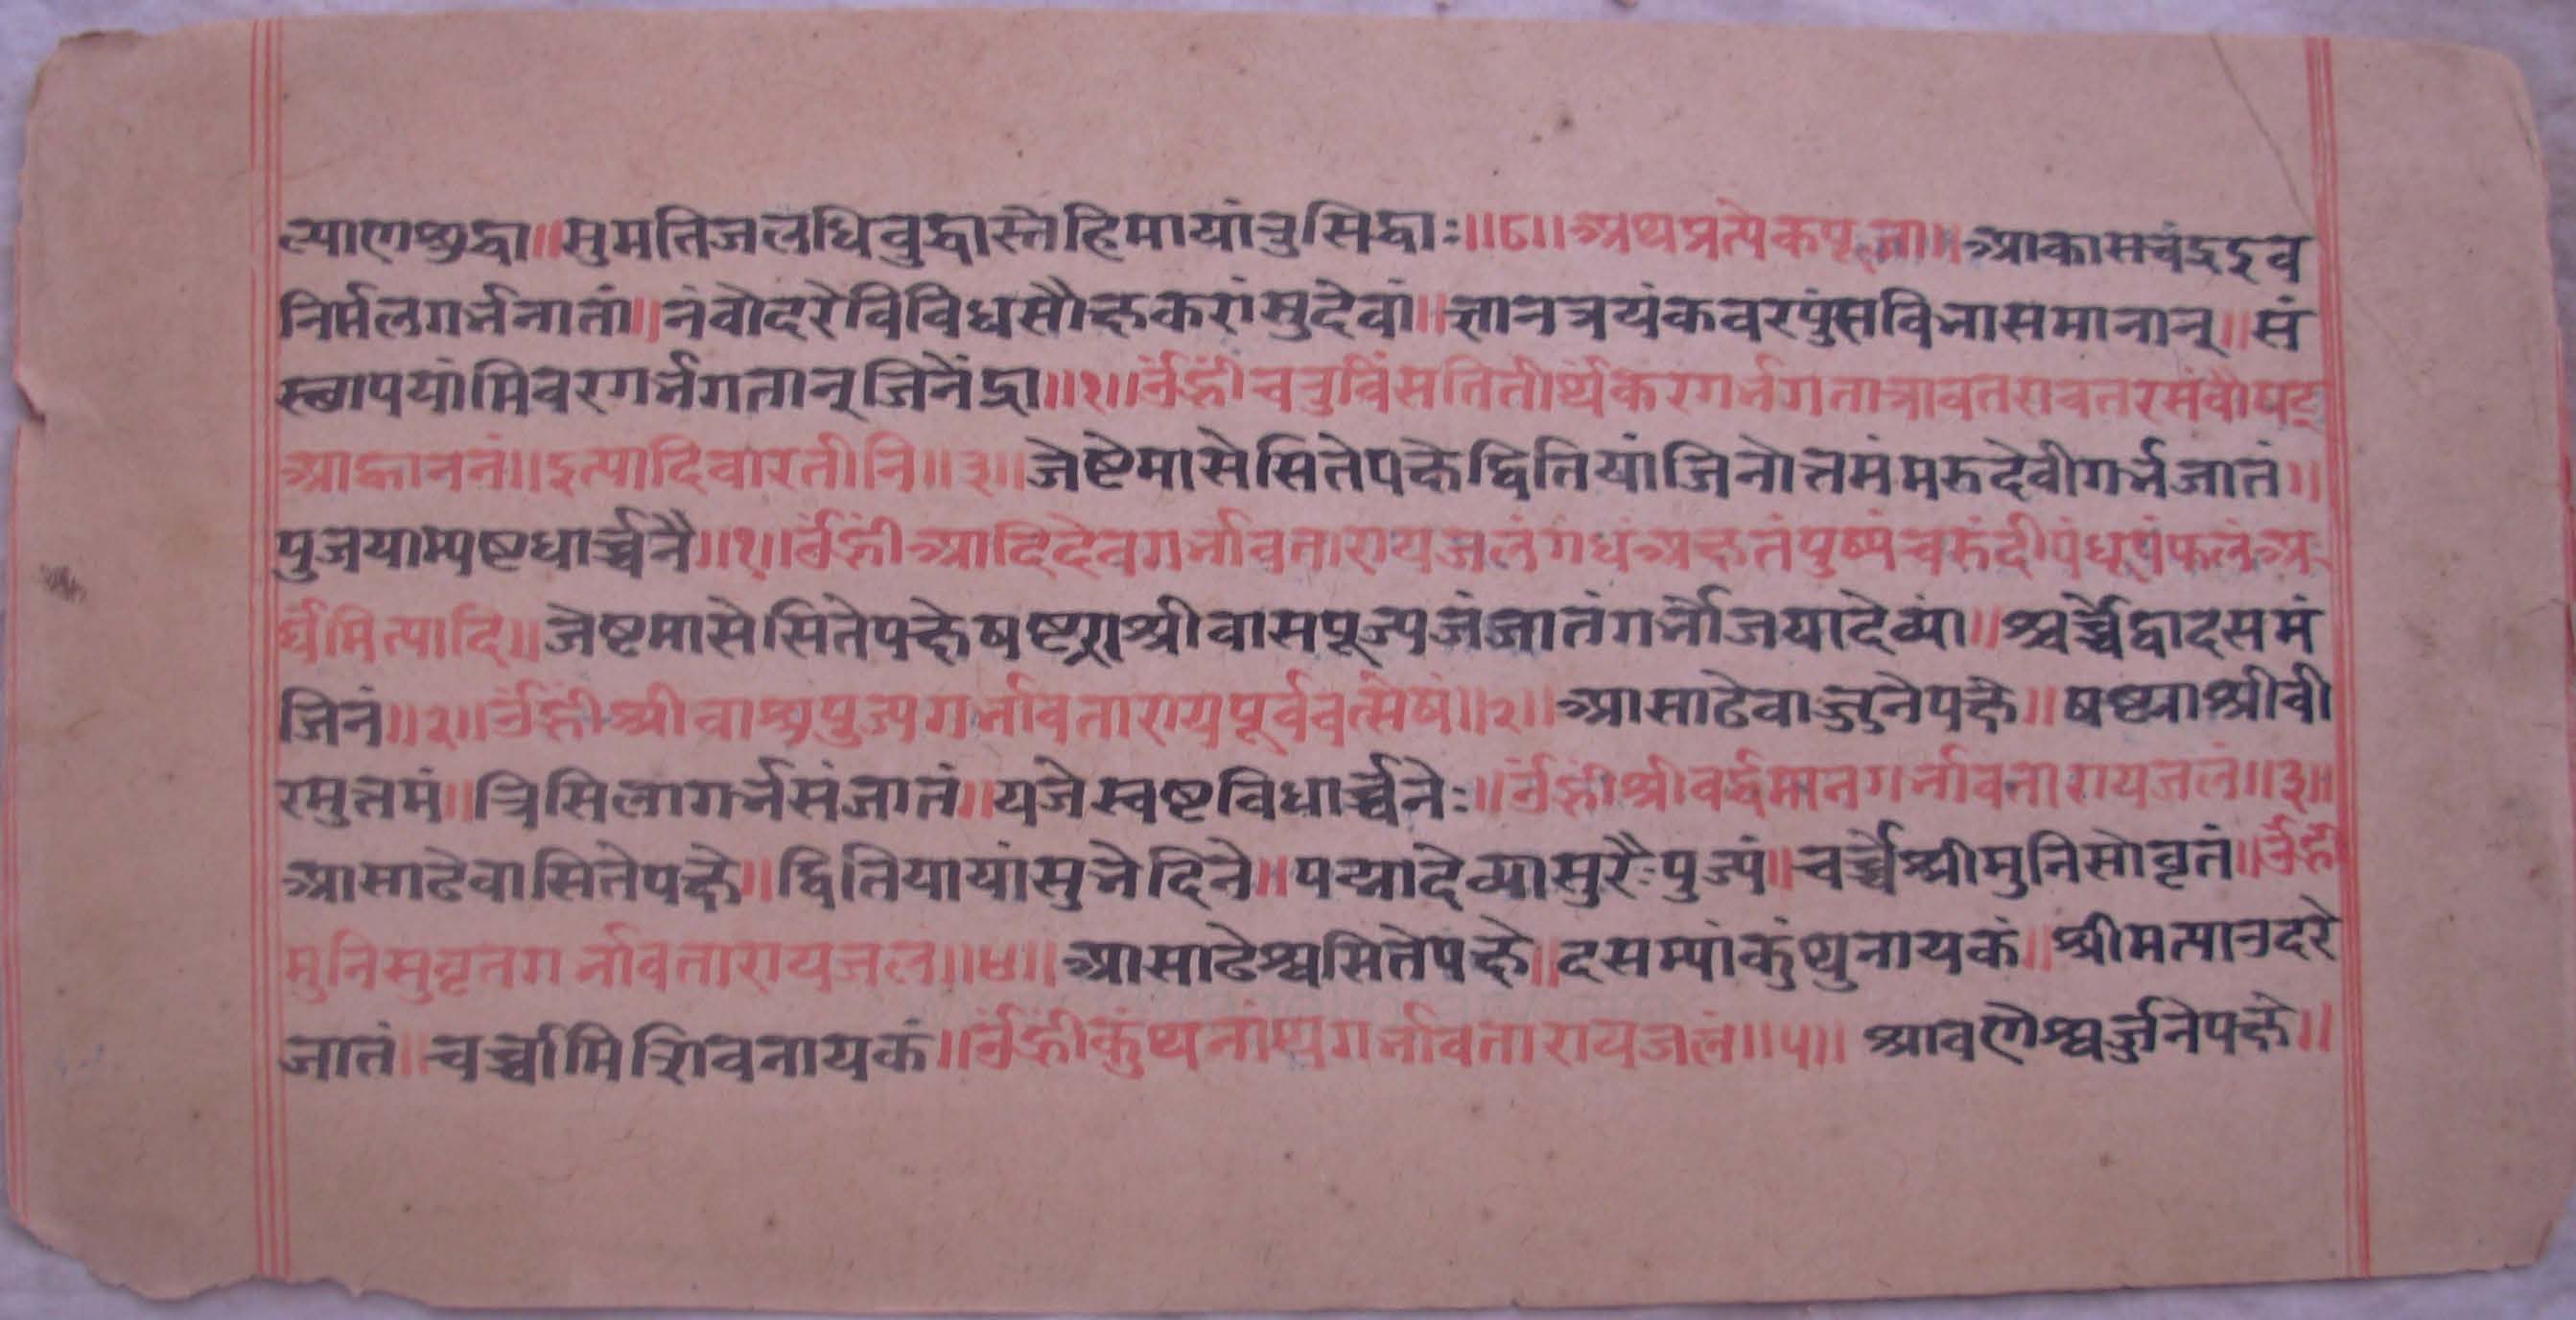 ल्याणशुद्धा॥सुमतिजलधिवुद्धास्तेहिमायांतुसिद्धाः॥८॥अथप्रत्येकपूजा॥आकासचंद्रइव
निर्मलगर्भनातां॥नंवोदरेविविधसौक्ष्यकरांमुदेवां॥ज्ञानत्रयंकवरपुंसविभासमानान्॥सं
स्छापयांमिवरगर्भगतान्जिनेंद्रा॥१॥र्उंह्रींचतुर्विंसतितीर्थंकरगर्भगतात्रावतरावतरसंवौषट्
आह्वाननं॥इत्यादिवारतीनि॥३॥जेष्टेमासेसितेपक्षेद्वितियांजिनोत्तमंमरुदेवीगर्भजातं॥
पुजयाम्पष्टधार्च्चनै॥१॥र्उंह्रींआदिदेवगर्भावतारायजलंगंधंअक्षतंपुष्पंचरुंदीपंधूपंफलंअ
र्घमित्यादि॥जेष्टमासेसितेपक्षेषष्ट्याश्रीवासपूज्यजंजातंगर्भोजयादेव्यां॥श्चर्च्चेद्वादसमं
जिनं॥२॥र्उंह्रींश्रीवाश्रपुज्यगर्भावतारायपूर्ववत्सेषं॥२॥आसाढेवार्जुनेपक्षे॥षष्ट्याश्रीवी
रमुतमं॥त्रिसिलागर्भसंजातं॥यजेस्वष्टविधार्च्चनेः॥र्उंह्रींश्रीवर्द्धमानगर्भावतारायजलं॥३॥
आसाढेवासितेपक्षे॥द्वितियायांसुभेदिने॥पद्मादेव्यासुरैःपुज्यं॥चर्च्चेश्रीमुनिसोवृतं॥र्उंह्रीं
मुनिसुवृतगर्भावतारायजलं॥४॥आसाढेश्वसितेपक्षे॥दसम्यांकुंथुनायकं॥श्रीमत्यानदरे
जातं॥चर्च्चामिशिवनायकं॥र्उंह्रींकुंथनांथगर्भावतारायजलं॥५॥श्रावणेश्वर्जुनेपक्षे॥